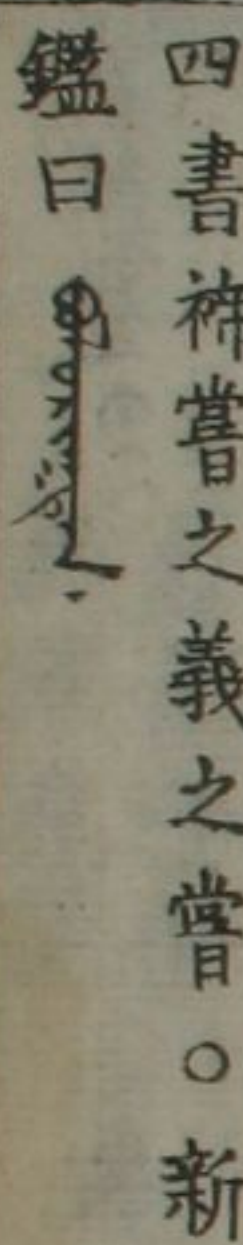 四書禘嘗之義之嘗○新
鑑曰